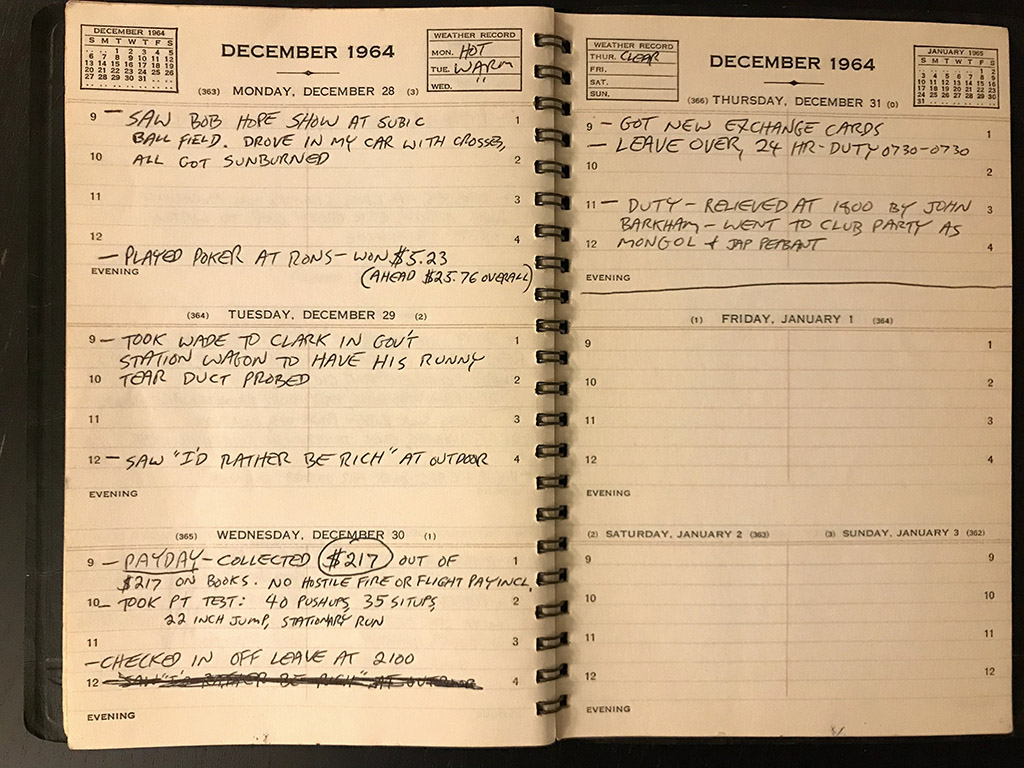 DECEMBER 1964
S M T W T F S
1 2 3 4 5
6 7 8 9 10 11 12
13 14 15 16 17 18 19
20 21 22 23 24 25 26
27 28 29 30 31
DECEMBER 1964
WEATHER RECORD
MON. HOT
TUE. WARM
WED. "
(363) MONDAY, DECEMBER 28 (3)
9 – SAW BOB HOPE SHOW AT SUBIC 1
BALL FIELD. DROVE IN MY CAR WITH CROSSES,
10 ALL GOT SUNBURNED 2
11 3
12 4
– PLAYED POKER AT RONS – WON $5.23
EVENING (AHEAD $25.76 OVERALL)
(364) TUESDAY, DECEMBER 29 (2)
9 – TOOK WADE TO CLARK IN GOV'T 1
STATION WAGON TO HAVE HIS RUNNY
10 TEAR DUCT PROBED 2
11 3
12 – SAW "I'D RATHER BE RICH" AT OUTDOOR 4
EVENING
(365) WEDNESDAY, DECEMBER 30 (1)
9 – PAYDAY – COLLECTED $217 OUT OF 1
$217 ON BOOKS. NO HOSTILE FIRE OR FLIGHT PAY INCL.
10 – TOOK PT TEST: 40 PUSHUPS, 35 SITUPS, 2
22 INCH JUMP, STATIONARY RUN
11 3
– CHECKED IN OFF LEAVE AT 2100
12 – SAW "I'D RATHER BE RICH" AT OUTDOOR 4
EVENING
WEATHER RECORD
THUR. CLEAR
FRI.
SAT.
SUN.
DECEMBER 1964
JANUARY 1965
S M T W T F S
1 2
3 4 5 6 7 8 9
10 11 12 13 14 15 16
17 18 19 20 21 22 23
24 25 26 27 28 29 30
31
(366) THURSDAY, DECEMBER 31 (0)
9 – GOT NEW EXCHANGE CARDS 1
– LEAVE OVER, 24 HR-DUTY 0730-0730
10 2
11 – DUTY – RELIEVED AT 1800 BY JOHN 3
BARKHAM – WENT TO CLUB PARTY AS
12 MONGOL & JAP PEASANT 4
EVENING
(1) FRIDAY, JANUARY 1 (364)
9 1
10 2
11 3
12 4
EVENING
(2) SATURDAY, JANUARY 2 (363) (3) SUNDAY, JANUARY 3 (362)
9 9
10 10
11 11
12 12
EVENING